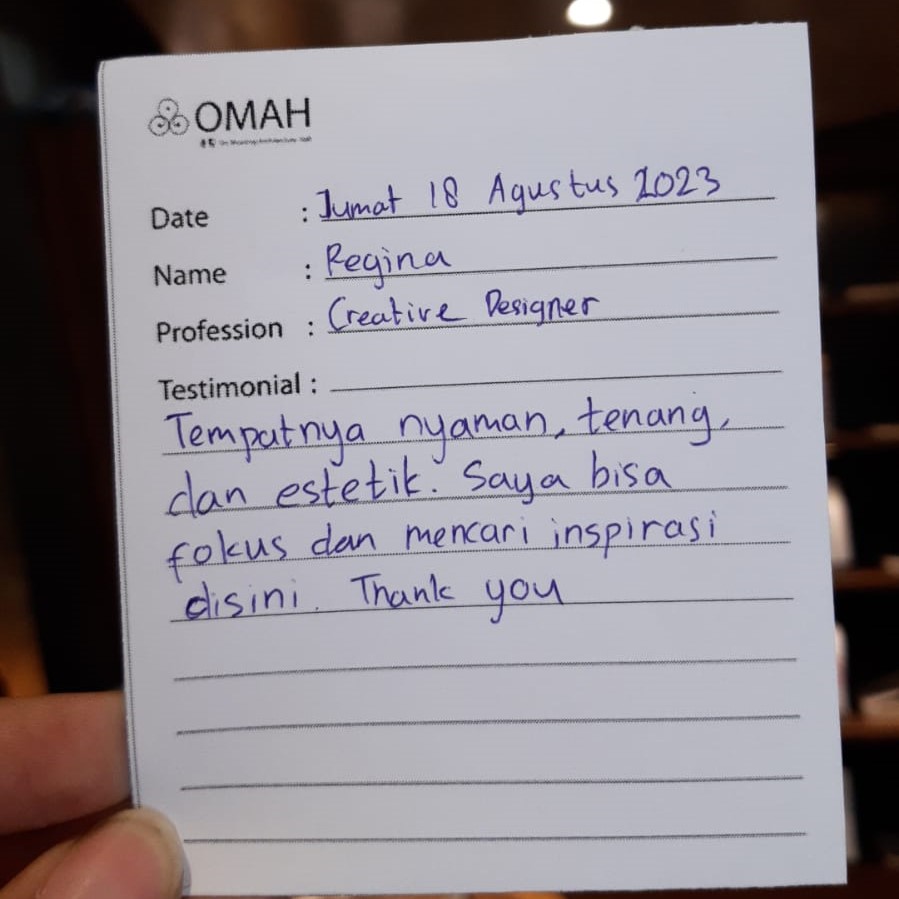 OMAH
Date : Jumat 18 Agustus 2023
Name : Regina
Profession : Creative Designer
Testimonial :
Tempatnya nyaman, tenang,
dan estetik. Saya bisa
fokus dan mencari inspirasi
disini. Thank you